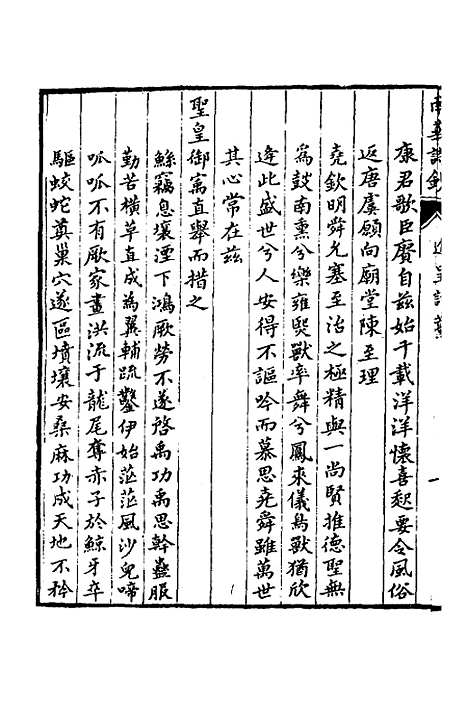 南華詩鈔
一
康君歌臣賡自茲始千載洋洋懷喜起要令風俗
返唐虞願向廟堂陳至理
堯欽明舜允塞至治之極精與一尚賢推德聖無
爲鼓南熏兮樂雍熙獸率舞兮鳳來儀鳥獸猶欣
逄此盛世兮人安得不謳吟而慕思堯舜雖萬世
其心常在茲
聖皇御寓直舉而措之
鯀竊息壤湮下鴻厥勞不遂啓禹功禹思幹蠱服
勤苦橫草直成為翼輔疏鑿伊始茫茫風沙兒啼
呱呱不有厥家畫洪流于龍尾奪赤子於鯨牙卒
驅蛟蛇奠巢穴遂區墳壤安桑麻功成天地不矜